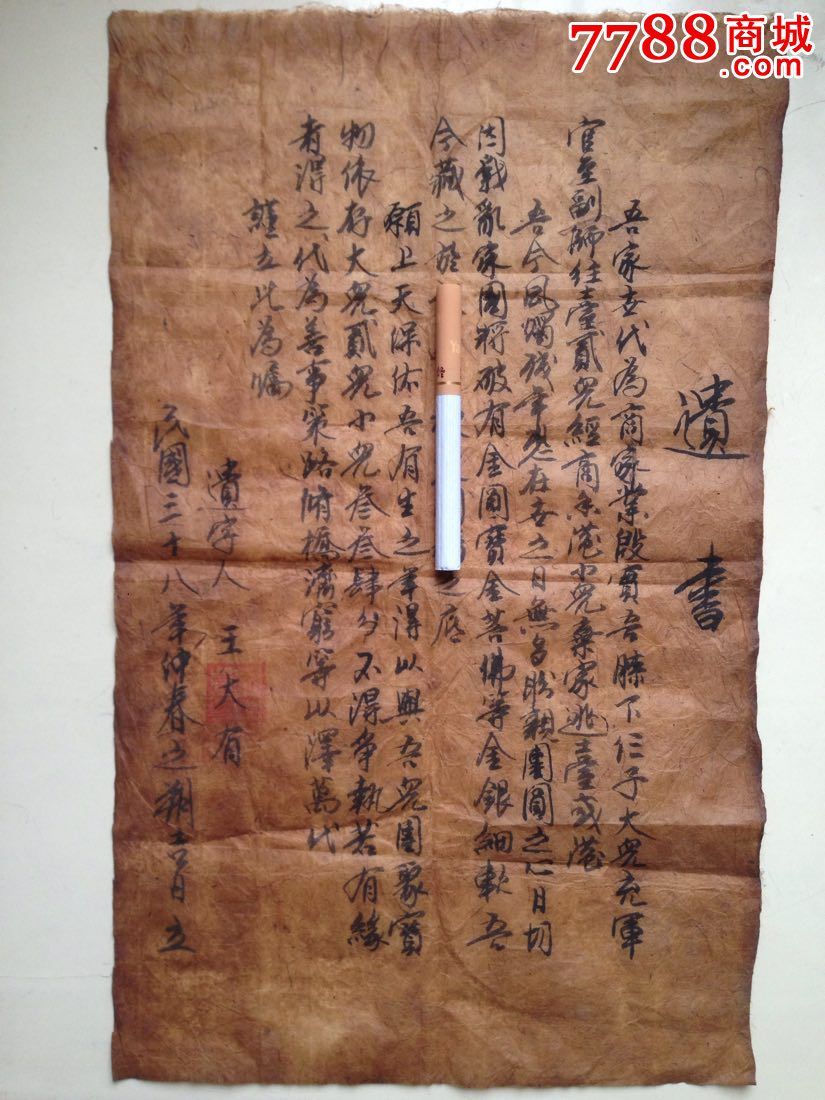 7788商城
.com
遺書
吾家世代為商家業殷實吾膝下仨子大兒充軍
官至副師往臺貳兒經商香港小兒棄家逃臺或港
吾今風燭殘年思在世之日無多盼親團圓之心日切
因戰亂家國將破有金圓寶金菩佛等金銀細軟吾
今藏之於 之底
願上天保佑吾有生之年得以與吾兒團聚寶
物依存大兒貳兒小兒叁叁肆分不得爭執若有緣
者得之代為善事築路脩橋濟窮等以澤萬代
謹立此為囑
遺字人 王大有
民國三十八年仲春之朔吉日立